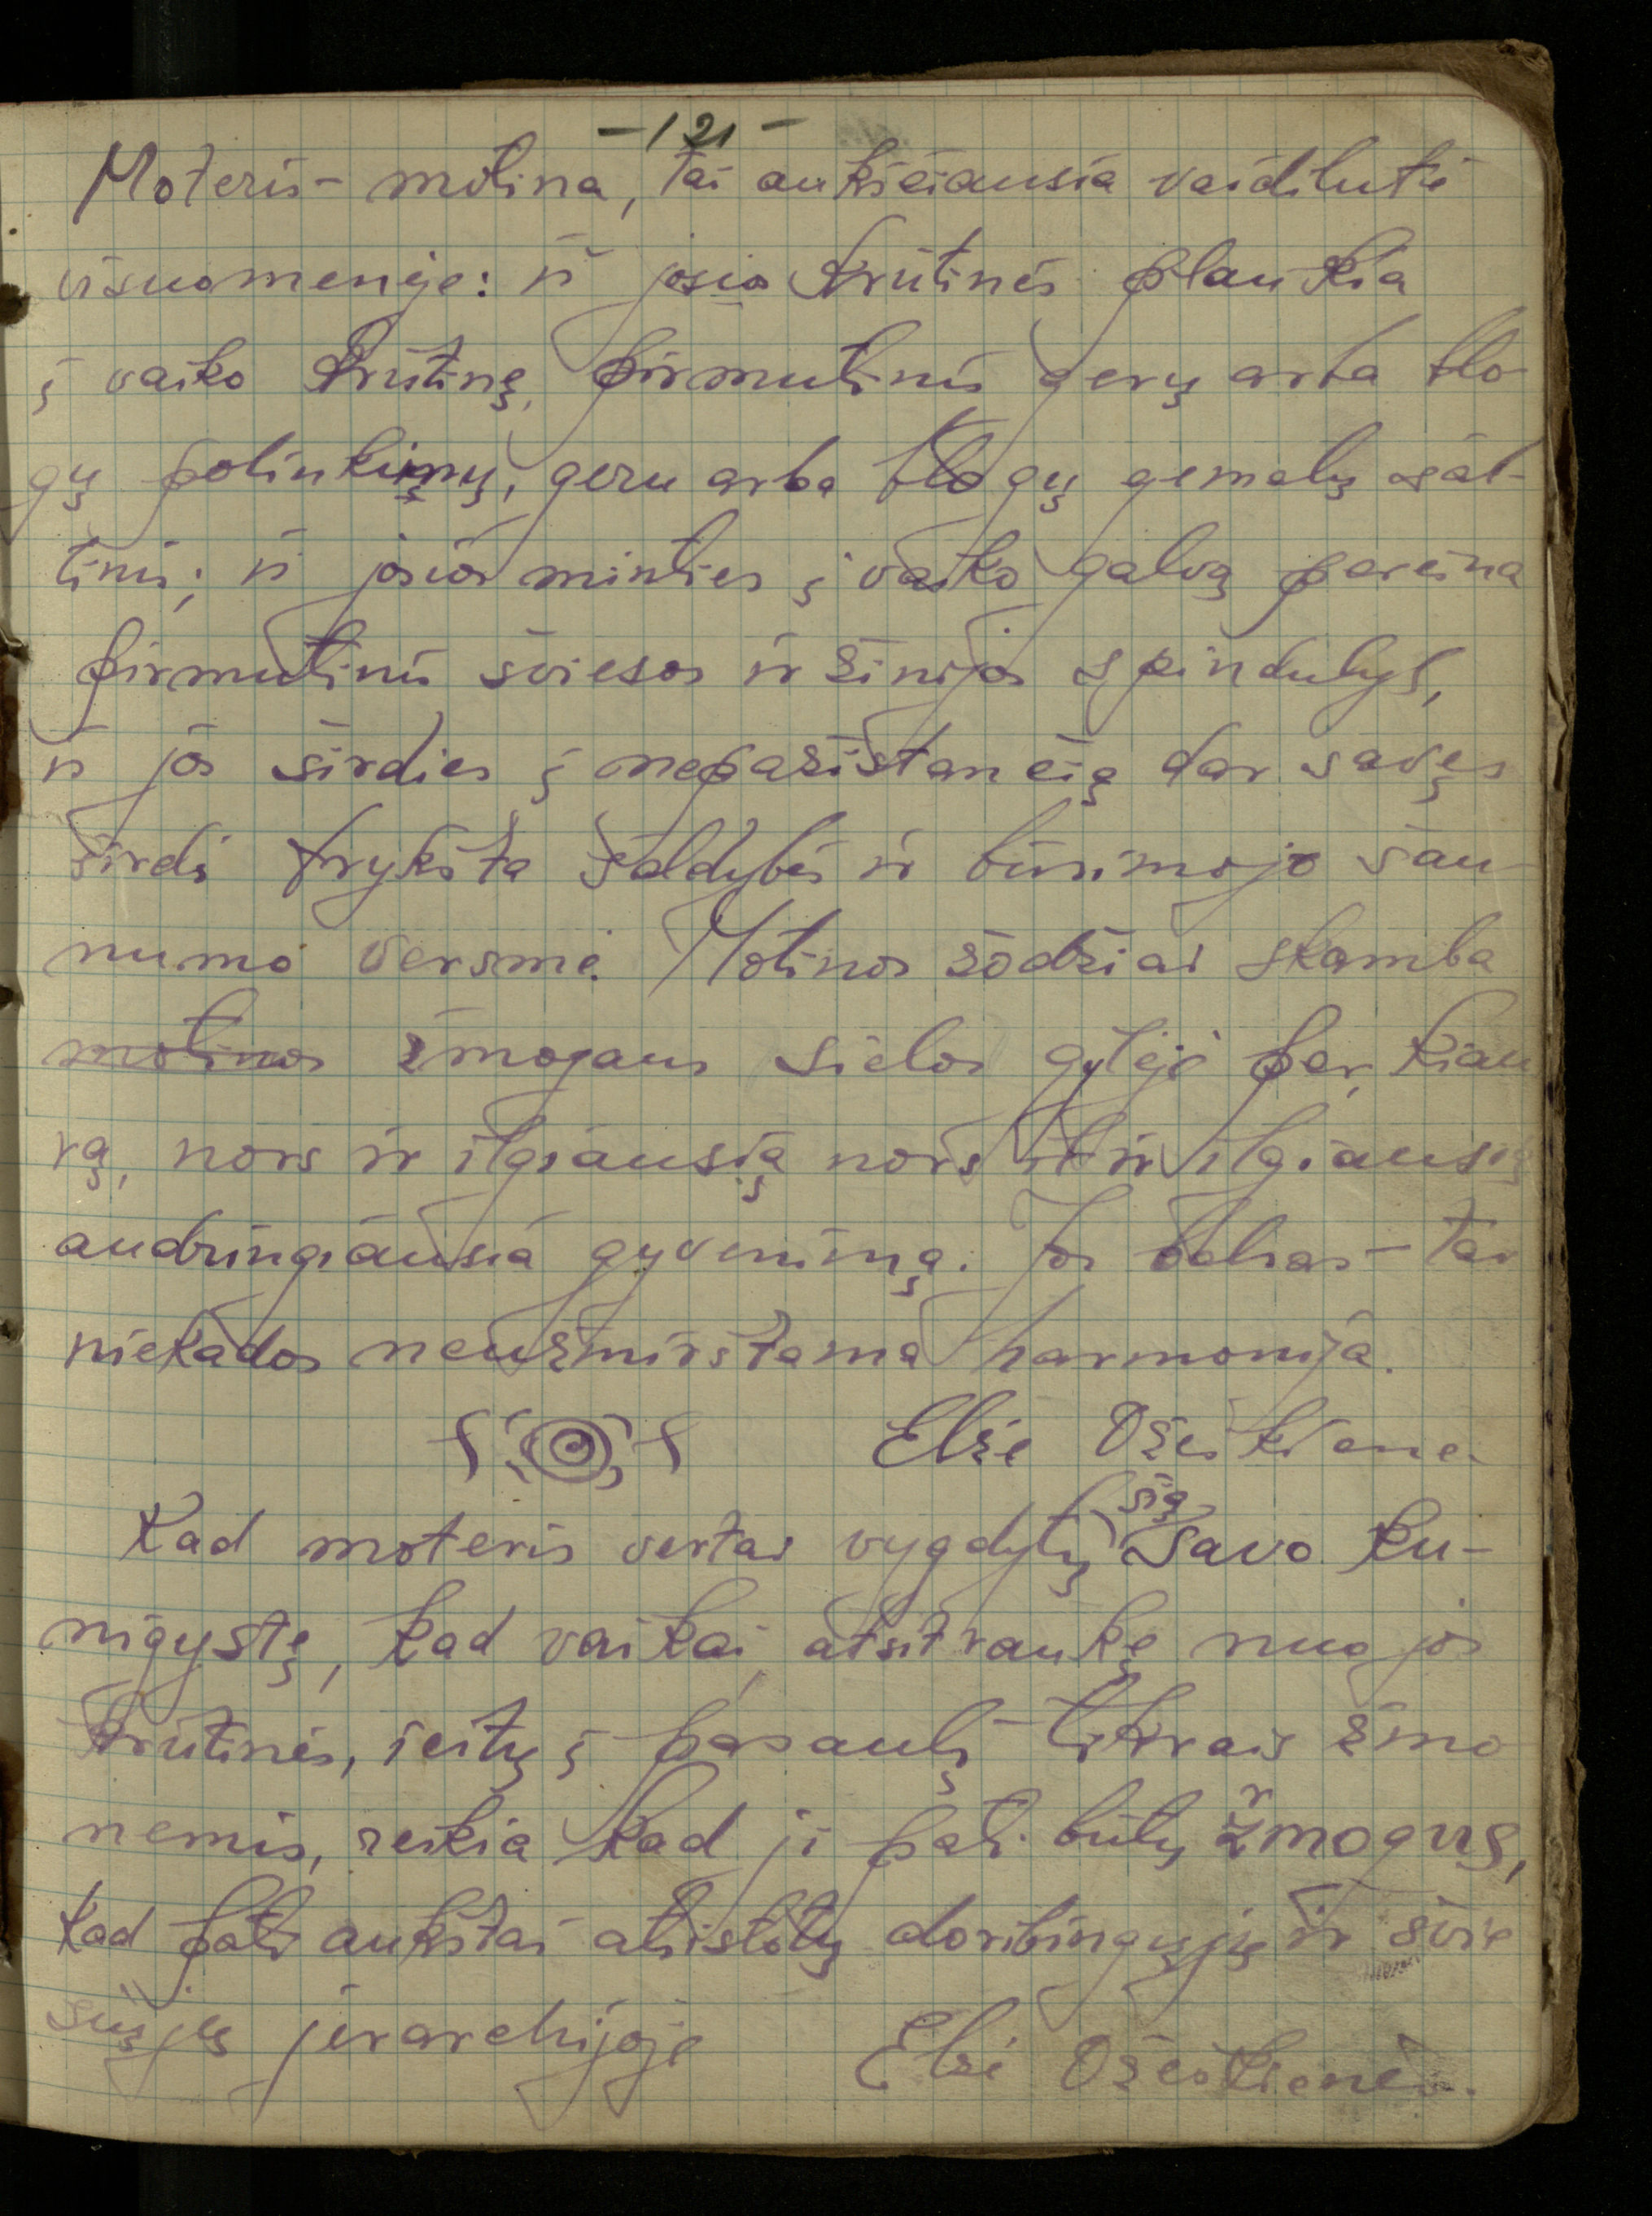 -121-
Moteris- motina, tai aukščiausia vaidilutė
visuomenėje: iš josios krūtinės plaukia
į vaiko krūtinę, pirmutinis gerų arba blo-
gų polinkimų, geru arba blogų gemalų šal-
tinis; iš josios minties į vaiko galvą pareina
pirmutinis šviesos ir žinijos spindulys,
iš jos širdies į nepažistančią dar savęs
širdį trykšta saldybės ir būsimojo šau-
numo versmė. Motinos žodžiai skamba
motinos žmogaus sielos gylėje per kiau
rą, nors ir ilgiausią nors ir ilgiausią
audringiausia gyvenimą. Jos balsas - tai
niekados neužmirštama harmonija.
Elžė Ožeškienė.
Kad moteris vertai vygdytų šią savo ku-
nigystę, kad vaikai atsitraukę nuo jos
krūtinės, išeitų į pasaulį tikrais žmo
nėmis, reikia kad ji pati būtų žmogus,
kad pati aukštai atsistotų doribingųjų ir švie
siųjų jerarchijoje
Elžė Ožeškienė.